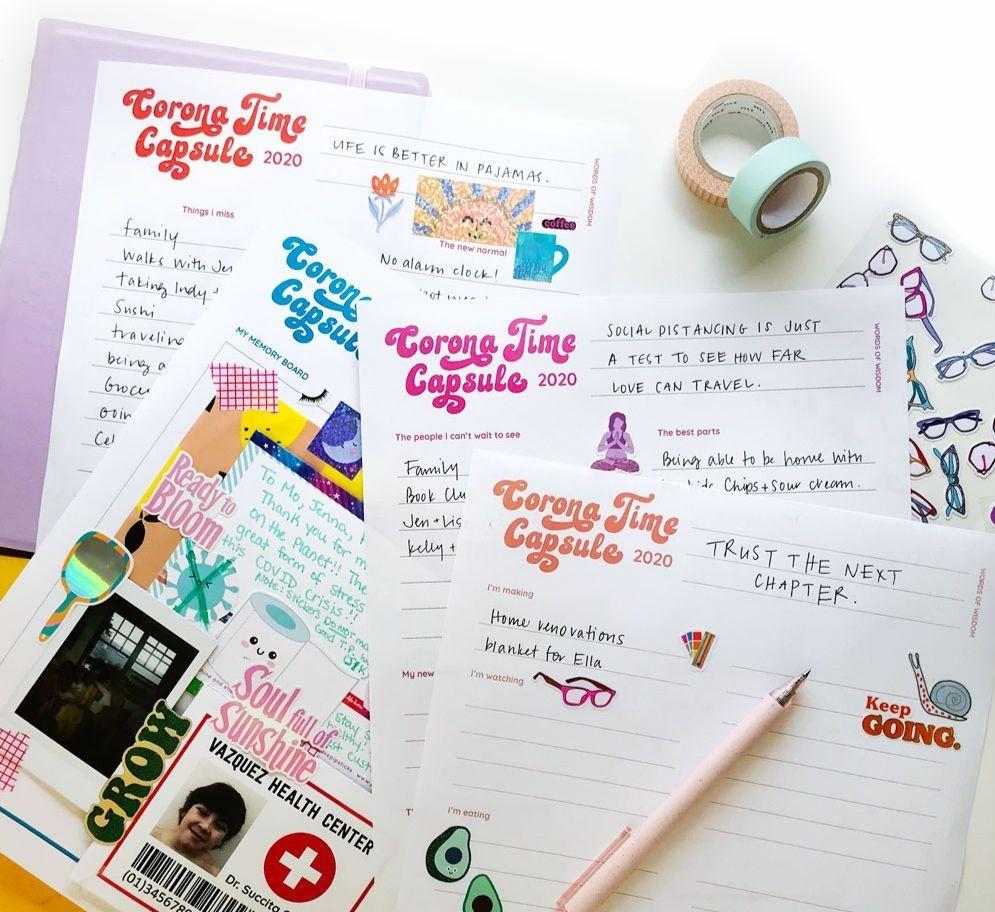 Corona Time
Capsule 2020
LIFE IS BETTER IN PAJAMAS.
WORDS OF WISDOM
coffee
Things I miss
family
walks with
taking Indy
Sushi
traveling
being a
The new normal
No alarm clock!
Corona
Capsule
MY MEMORY BOARD
Ready to
BLOOM
To Mo, Jenna,
Thank you for
on the planet!! The
great form of stress
this
COVID Crisis!!
Note: stickers DO NOT
Good T.P.
Soul full of
Sunshine
GROW
VAZQUEZ HEALTH CENTER
Dr. Succita
(01)3456789
Corona Time
Capsule 2020
SOCIAL DISTANCING IS JUST
A TEST TO SEE HOW FAR
LOVE CAN TRAVEL.
WORDS OF WISDOM
The people I can't wait to see
Family
Book
Jen +
kelly +
My new
The best parts
Being able to be home with
kids Chips + sour cream.
Corona Time
Capsule 2020
TRUST THE NEXT
CHAPTER.
WORDS OF WISDOM
I'm making
Home renovations
blanket for Ella
I'm watching
Keep
GOING.
I'm eating